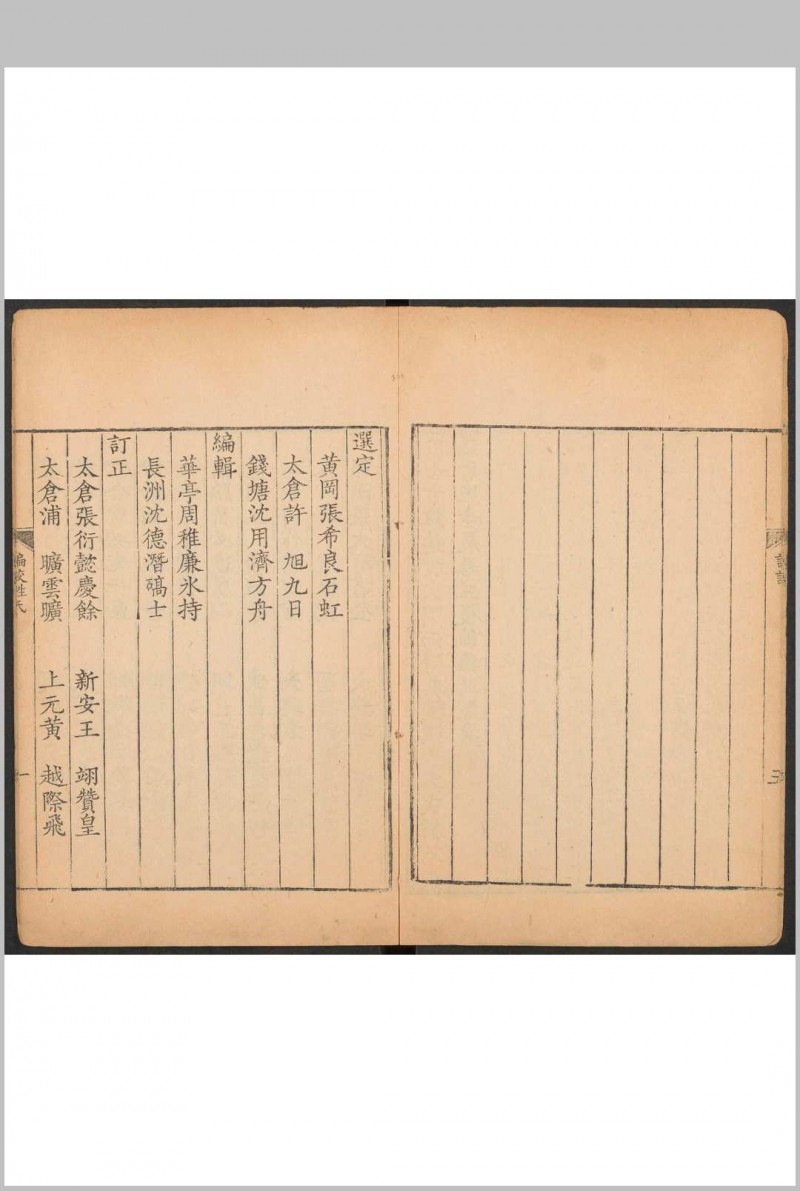 選定
黃岡張希良石虹
太倉許　旭九日
錢塘沈用濟方舟
編輯
華亭周稚廉氷持
長洲沈德潛碻士
訂正
太倉張衍懿慶餘　新安王　翊贊皇
太倉浦　曠雲曠　上元黃　越際飛
編校姓氏
一